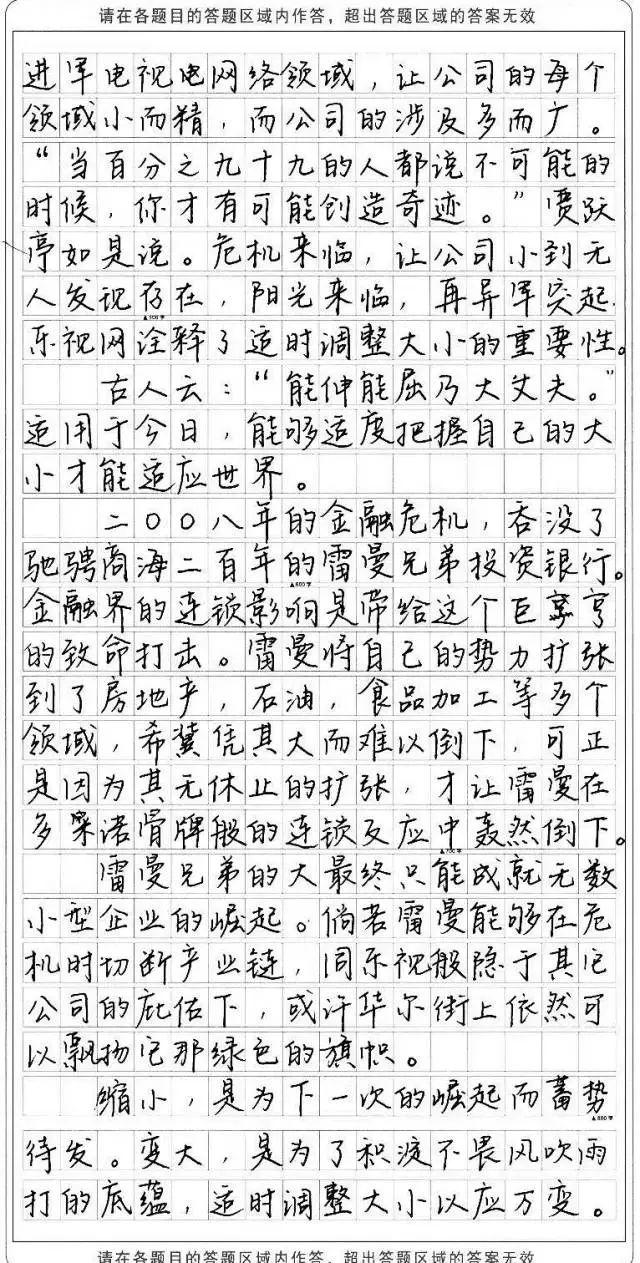 请在各题目的答题区域内作答，超出答题区域的答案无效
进军电视电网络领域，让公司的每个
领域小而精，而公司的涉及多而广。
“当百分之九十九的人都说不可能的
时候，你才有可能创造奇迹。”贾跃
亭如是说。危机来临，让公司小到无
人发现存在，阳光来临，再异军突起.
乐视网诠释了适时调整大小的重要性。
古人云：“能伸能屈乃大丈夫。”
适用于今日，能够适度把握自己的大
小才能适应世界。
二〇〇八年的金融危机，吞没了
驰骋商海二百年的雷曼兄弟投资银行。
▲600字
金融界的连锁影响是带给这个巨亨
的致命打击。雷曼将自己的势力扩张
到了房地产，石油，食品加工等多个
领域，希冀凭其大而难以倒下，可正
是因为其无休止的扩张，才让雷曼在
多米诺骨牌般的连锁反应中轰然倒下。
▲700字
雷曼兄弟的大最终只能成就无数
小型企业的崛起。倘若雷曼能够在危
机时切断产业链，同乐视般隐于其它
公司的庇佑下，或许华尔街上依然可
以飘扬它那绿色的旗帜。
缩小，是为下一次的崛起而蓄势
▲800字
待发。变大，是为了积淀不畏风吹雨
打的底蕴，适时调整大小以应万变。
请在各题目的答题区域内作答，超出答题区域的答案无效